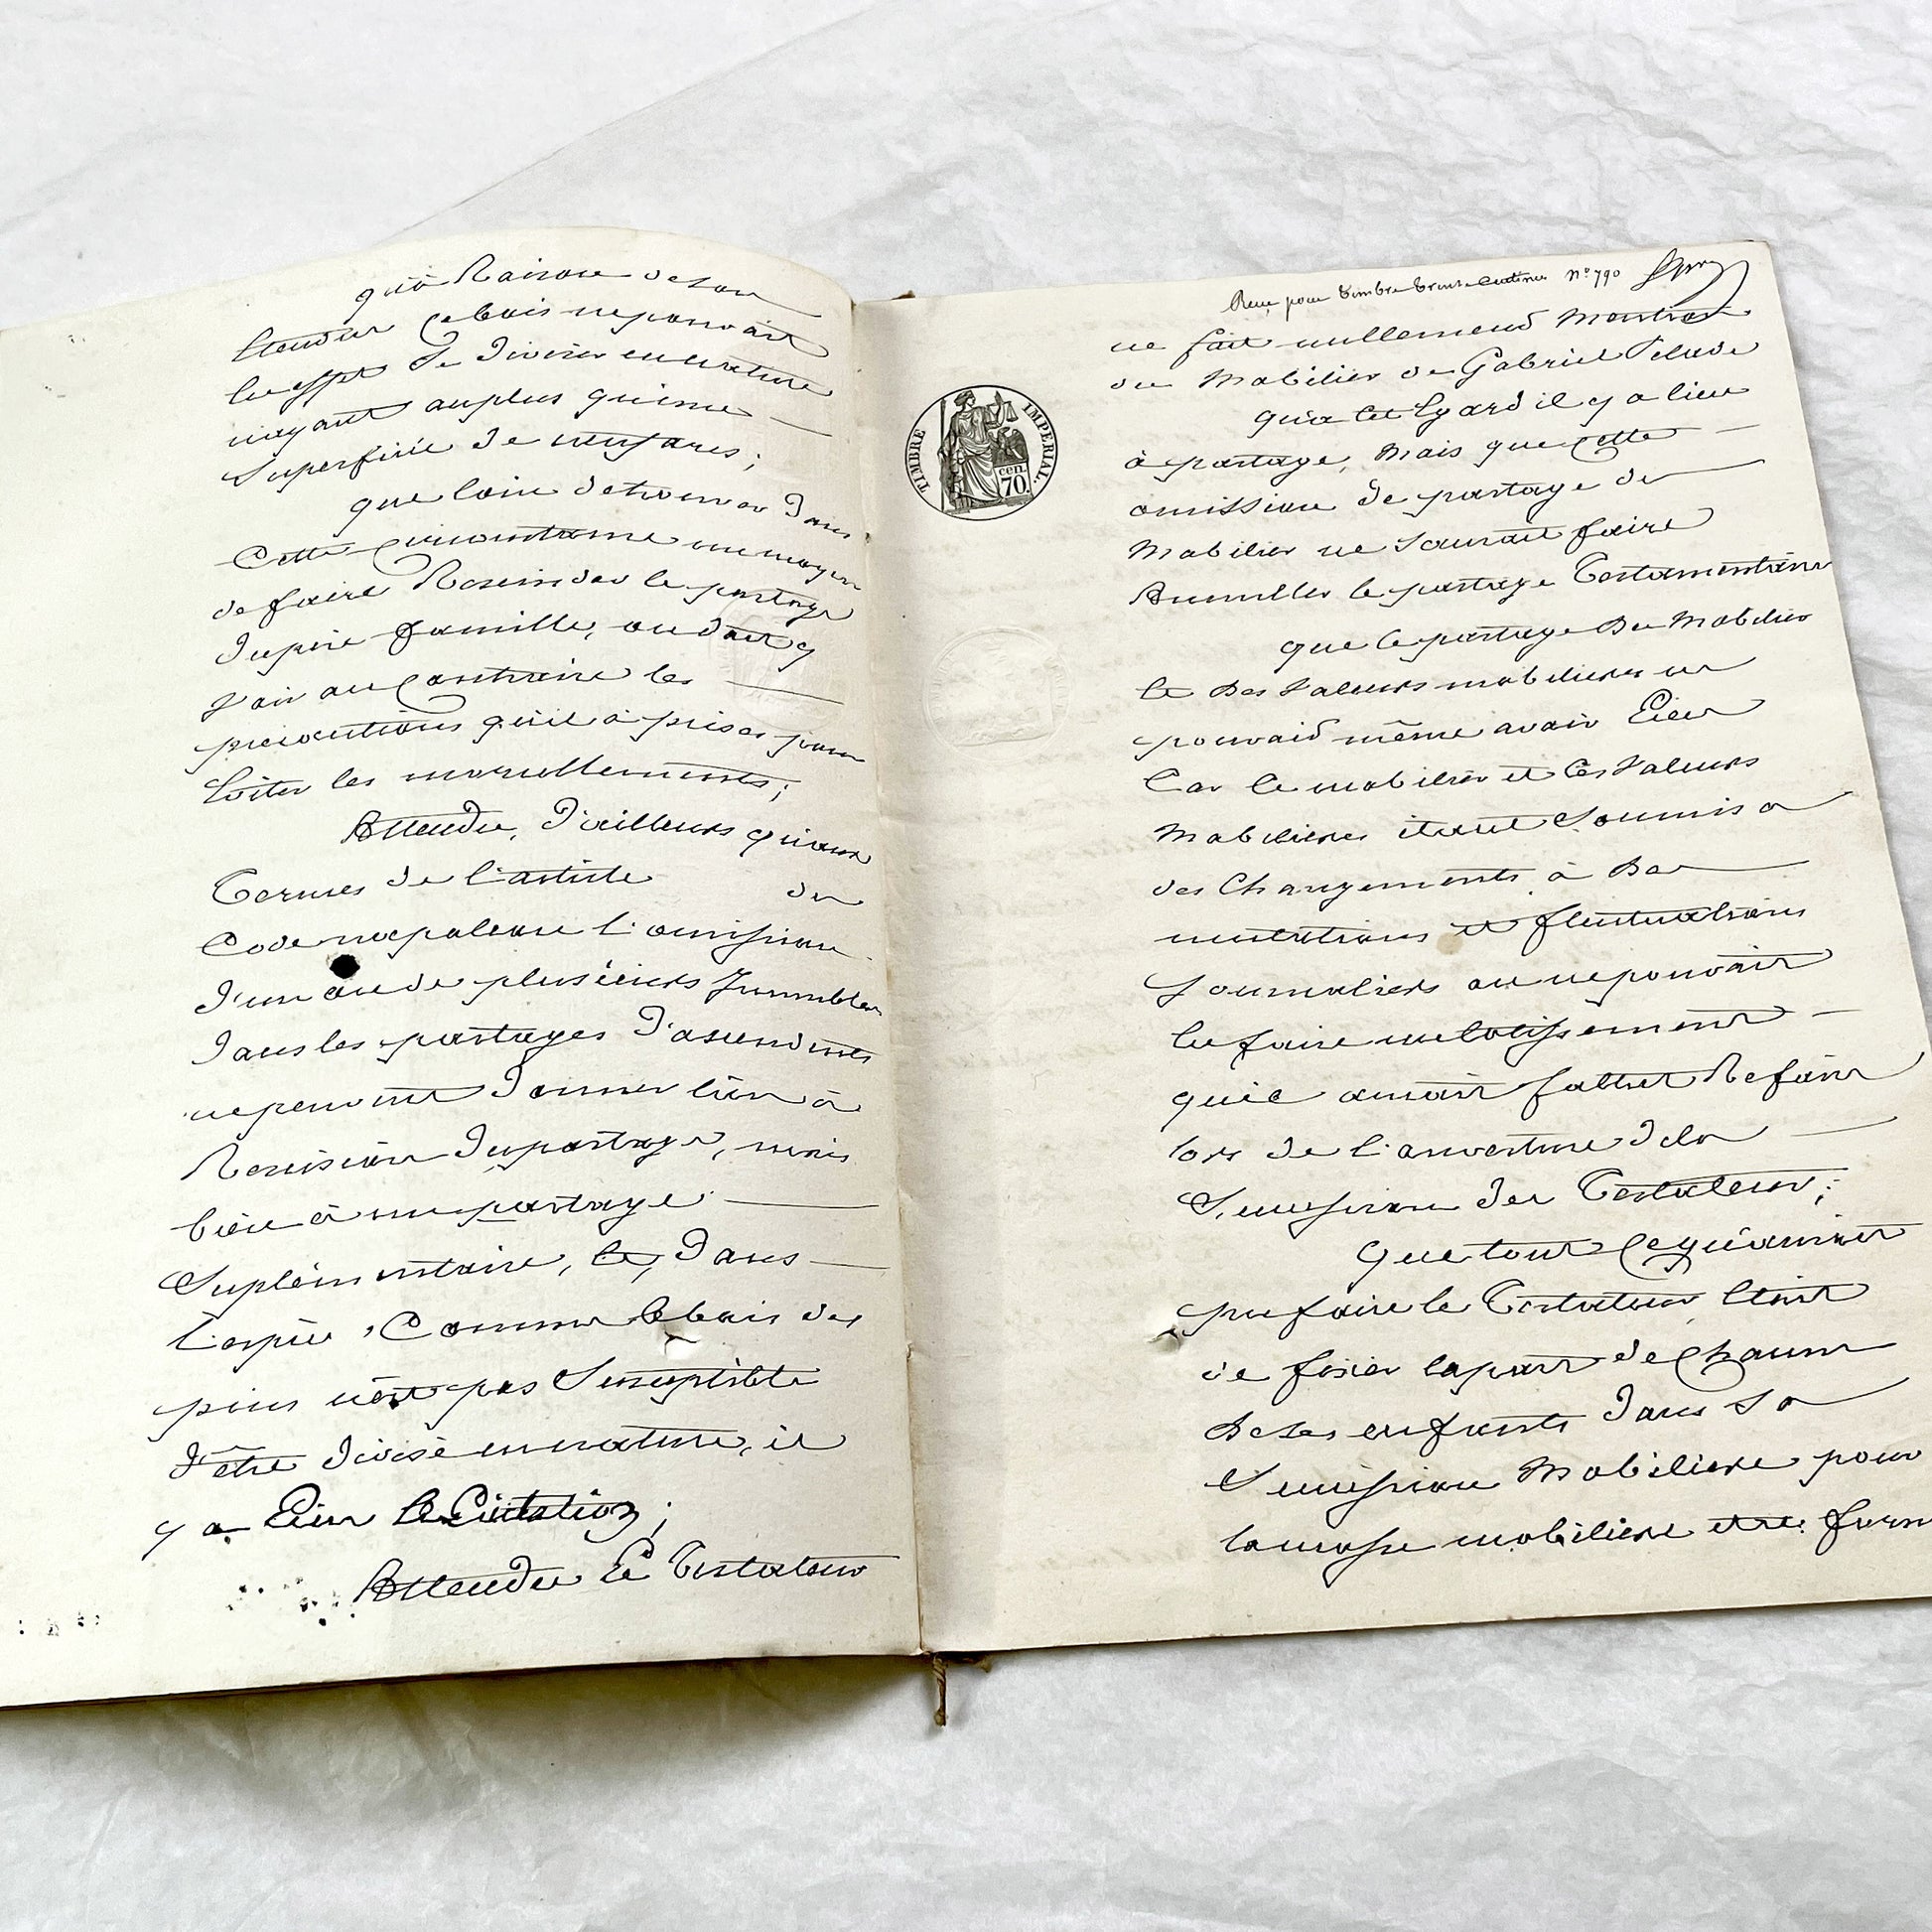 qu'à Raison de son
Etendue ce bois ne pouvait
En effet se diviser en nature
n'ayant au plus qu'une
Superficie de neuf ares;
que loin de trouver Dans
Cette Circonstance un moyen
de faire Rescinder le partage
Du père famille, on doit y
Voir au Contraire les
précautions qu'il a prises pour
Eviter les morcellements;
Attendu, D'ailleurs qu'aux
Termes de l'article du
Code napoléon l'omission
D'un ou de plusieurs Immeubles
Dans les partages D'ascendants
ne peuvent Donner lieu à
Rescision Du partage, mais
bien à un partage
Suplémentaire, Et, Dans
L'espèce, Comme le bois des
pins n'est pas Susceptible
D'être Divisé en nature, il
y a Lieu à Licitation;
Attendu Le Testateur
Reçu pour Timbre Trente Centimes N° 790
ne fait nullement Mention
du Mobilier de Gabriel
qu'à cet Egard il y a lieu
à partage, Mais que Cette
omission de partage du
Mobilier ne Saurait faire
Annuller le partage Testamentaire
que le partage Du Mobilier
Et Des Valeurs mobilières ne
pouvait même avoir Lieu
Car le mobilier et Les Valeurs
Mobilières étant Soumis à
des Changements à Des
mutations et fluctuations
Journaliers on ne pouvait
En faire un lotissement
qu'il aurait fallut Refaire
lors de l'ouverture De la
Succession Du Testateur;
Que tout Ce qu'aurait
pu faire le Testateur Etait
de fixer la part de Chacun
De Ses enfants Dans Sa
Succession Mobilière pour
la masse mobilière être form
TIMBRE IMPERIAL.
70
cen.